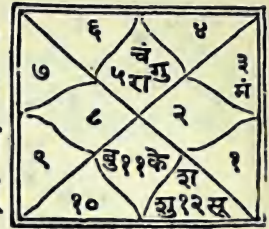 ६ ४
चं गु
७ ५ रा ३
मं
८ २
९ बु ११ के १
श
१० शु १२ सू